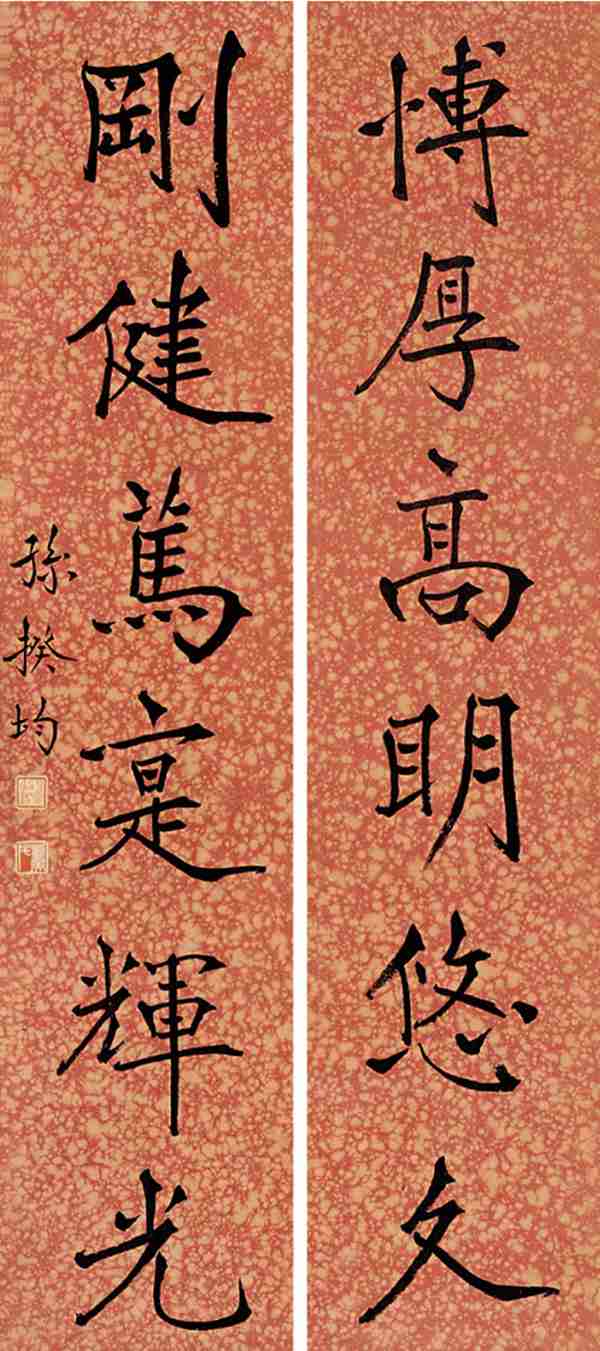 博厚高明悠久
剛健篤寔輝光
孫揆均